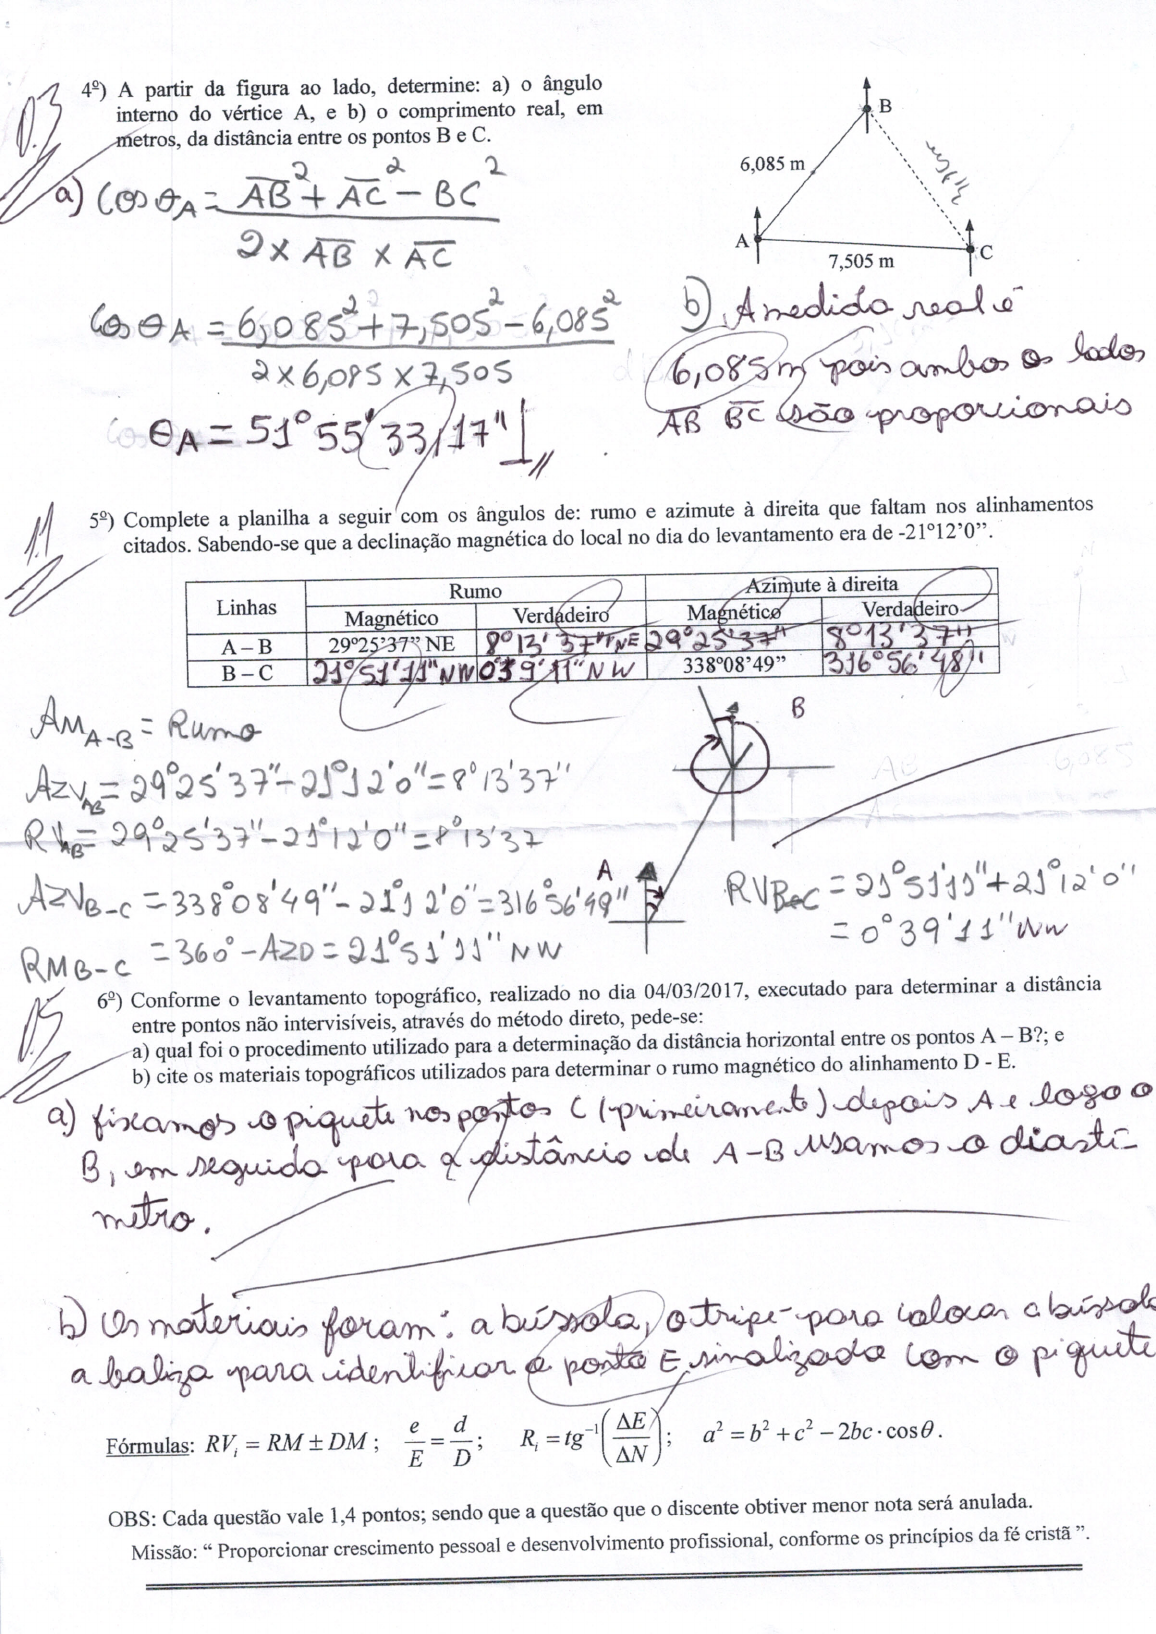 0.3
4º) A partir da figura ao lado, determine: a) o ângulo
interno do vértice A, e b) o comprimento real, em
metros, da distância entre os pontos B e C.
B
6,085 m
A
C
7,505 m
a) Cos θA = AB² + AC² - BC²
2 x AB x AC
Cos θA = 6,085² + 7,505² - 6,085²
2 x 6,085 x 7,505
θA = 51° 55' 33,17"
b) A medida real é
6,085m, pois ambos os lados
AB BC são proporcionais
1.1
5º) Complete a planilha a seguir com os ângulos de: rumo e azimute à direita que faltam nos alinhamentos
citados. Sabendo-se que a declinação magnética do local no dia do levantamento era de -21º12'0".
Linhas Rumo Azimute à direita
Magnético Verdadeiro Magnético Verdadeiro
A – B 29º25'37" NE 8°13'37" NE 29°25'37" 8°13'37"
B – C 21°51'11" NW 0°39'11" NW 338º08'49" 316°56'48"
B
AM A-B = Rumo
AZV AB = 29°25'37" - 21°12'0" = 8°13'37"
RV AB = 29°25'37" - 21°12'0" = 8°13'37
A
AZV B-C = 338°08'49" - 21°12'0" = 316°56'49"
RM B-C = 360° - AZD = 21°51'11" NW
RV B-C = 21°51'11" + 21°12'0"
= 0°39'11" NW
0.5
6º) Conforme o levantamento topográfico, realizado no dia 04/03/2017, executado para determinar a distância
entre pontos não intervisíveis, através do método direto, pede-se:
a) qual foi o procedimento utilizado para a determinação da distância horizontal entre os pontos A – B?; e
b) cite os materiais topográficos utilizados para determinar o rumo magnético do alinhamento D - E.
a) fixamos o piquete nos pontos C (primeiramente) depois A e logo o
B, em seguida para a distância de A-B usamos o diastí-
metro.
b) Os materiais foram: a bússola, o tripé para colocar a bússola
a baliza para identificar o ponto E sinalizado com o piquete
Fórmulas: RVi = RM ± DM ; e/E = d/D ; Ri = tg⁻¹(ΔE/ΔN) ; a² = b² + c² − 2bc · cosθ .
OBS: Cada questão vale 1,4 pontos; sendo que a questão que o discente obtiver menor nota será anulada.
Missão: “ Proporcionar crescimento pessoal e desenvolvimento profissional, conforme os princípios da fé cristã ”.